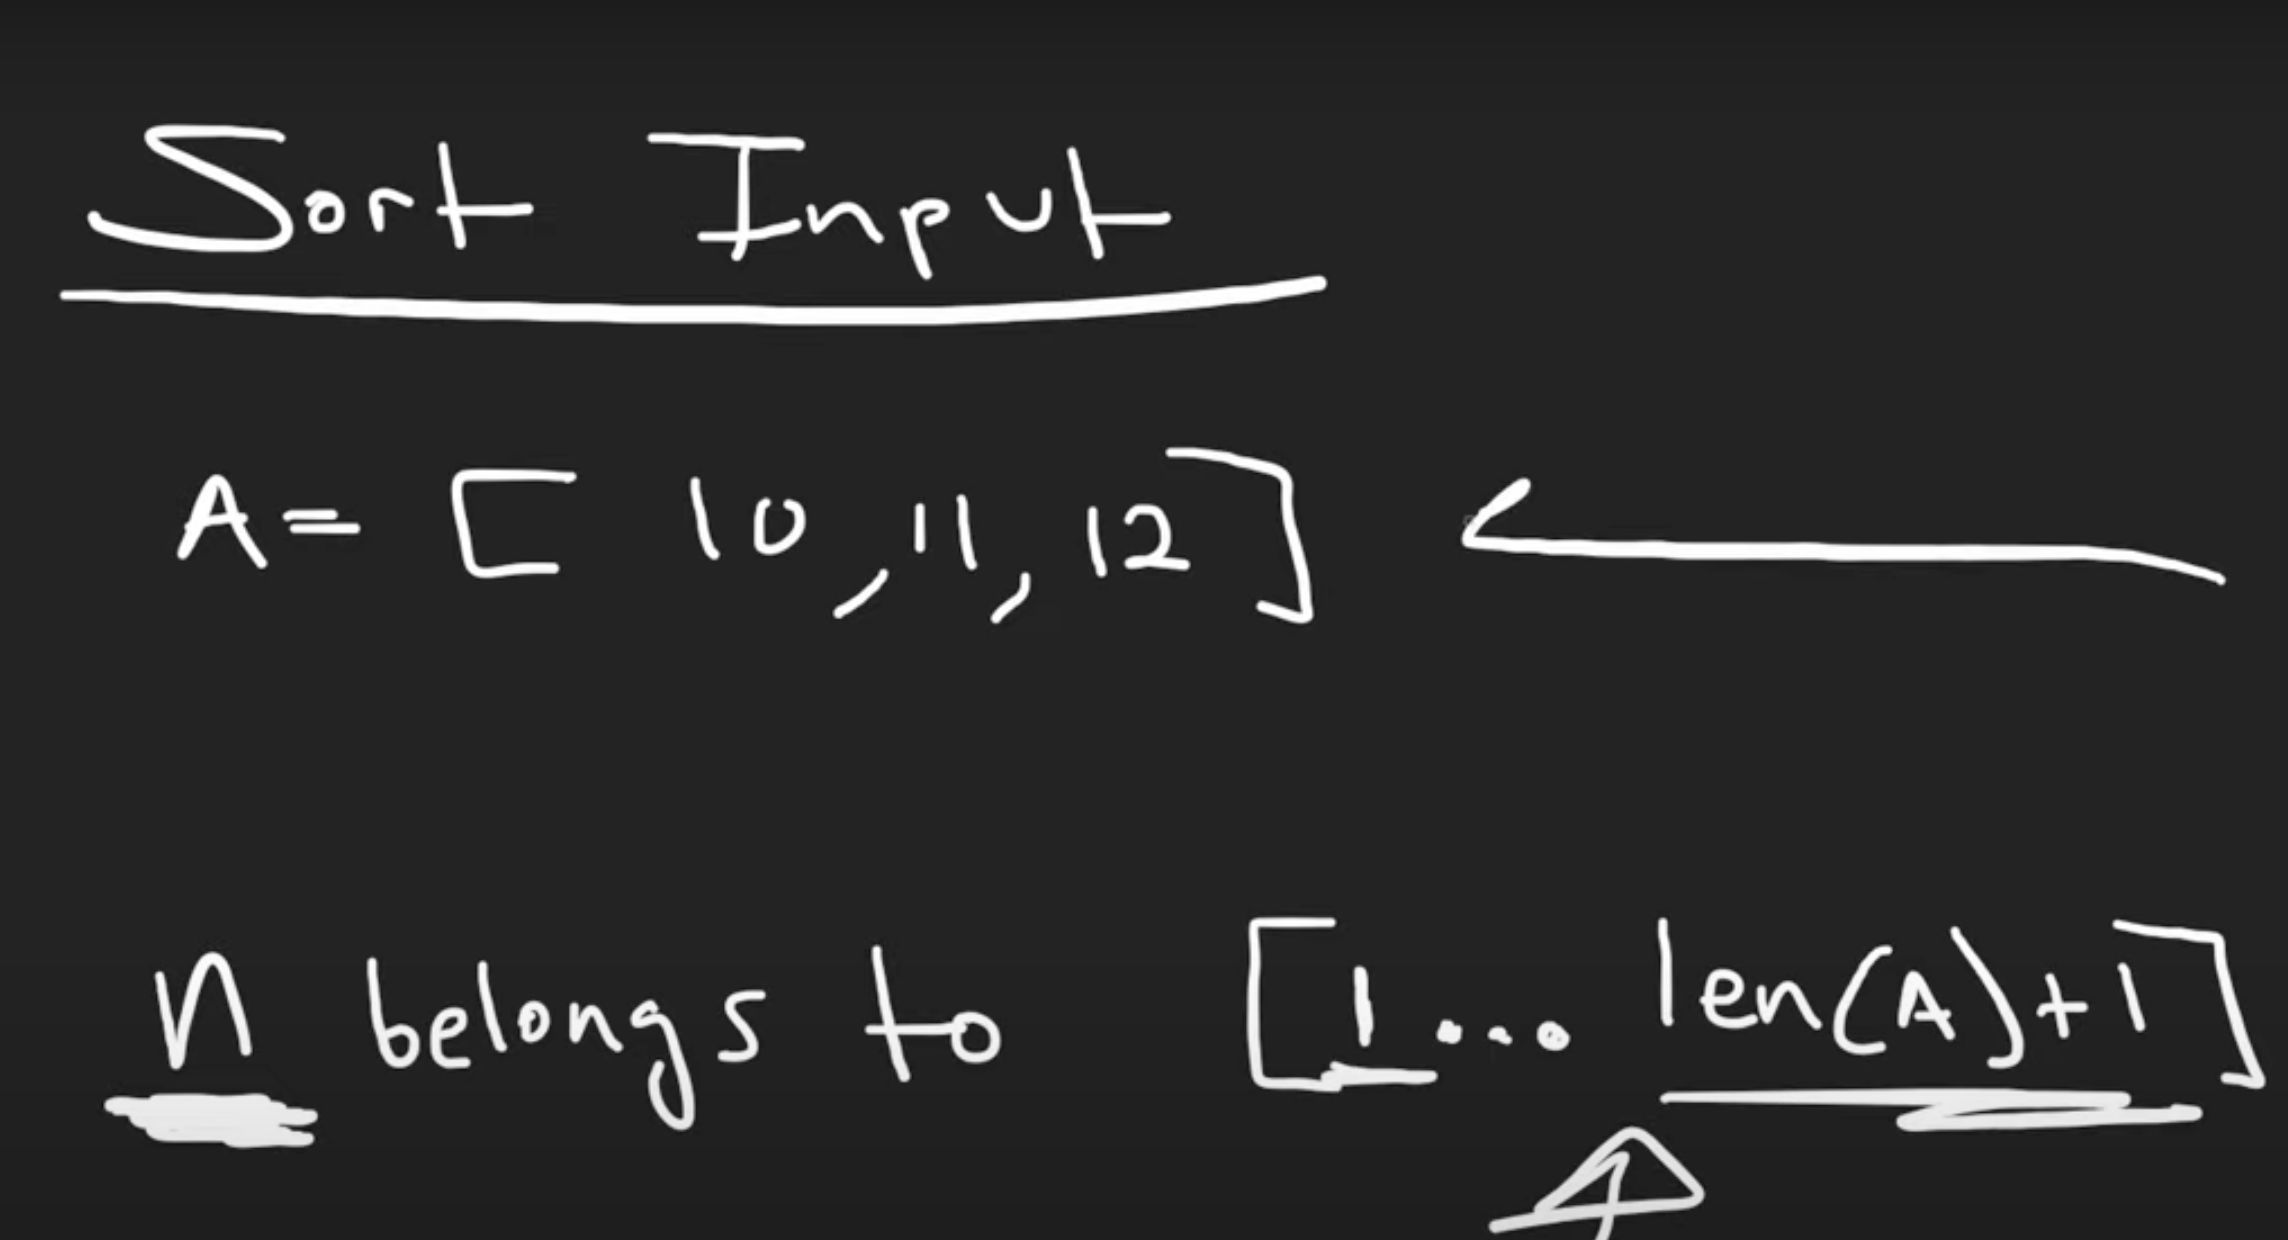 Sort Input
A= [ 10, 11, 12 ]
n belongs to [1... len(A)+1]